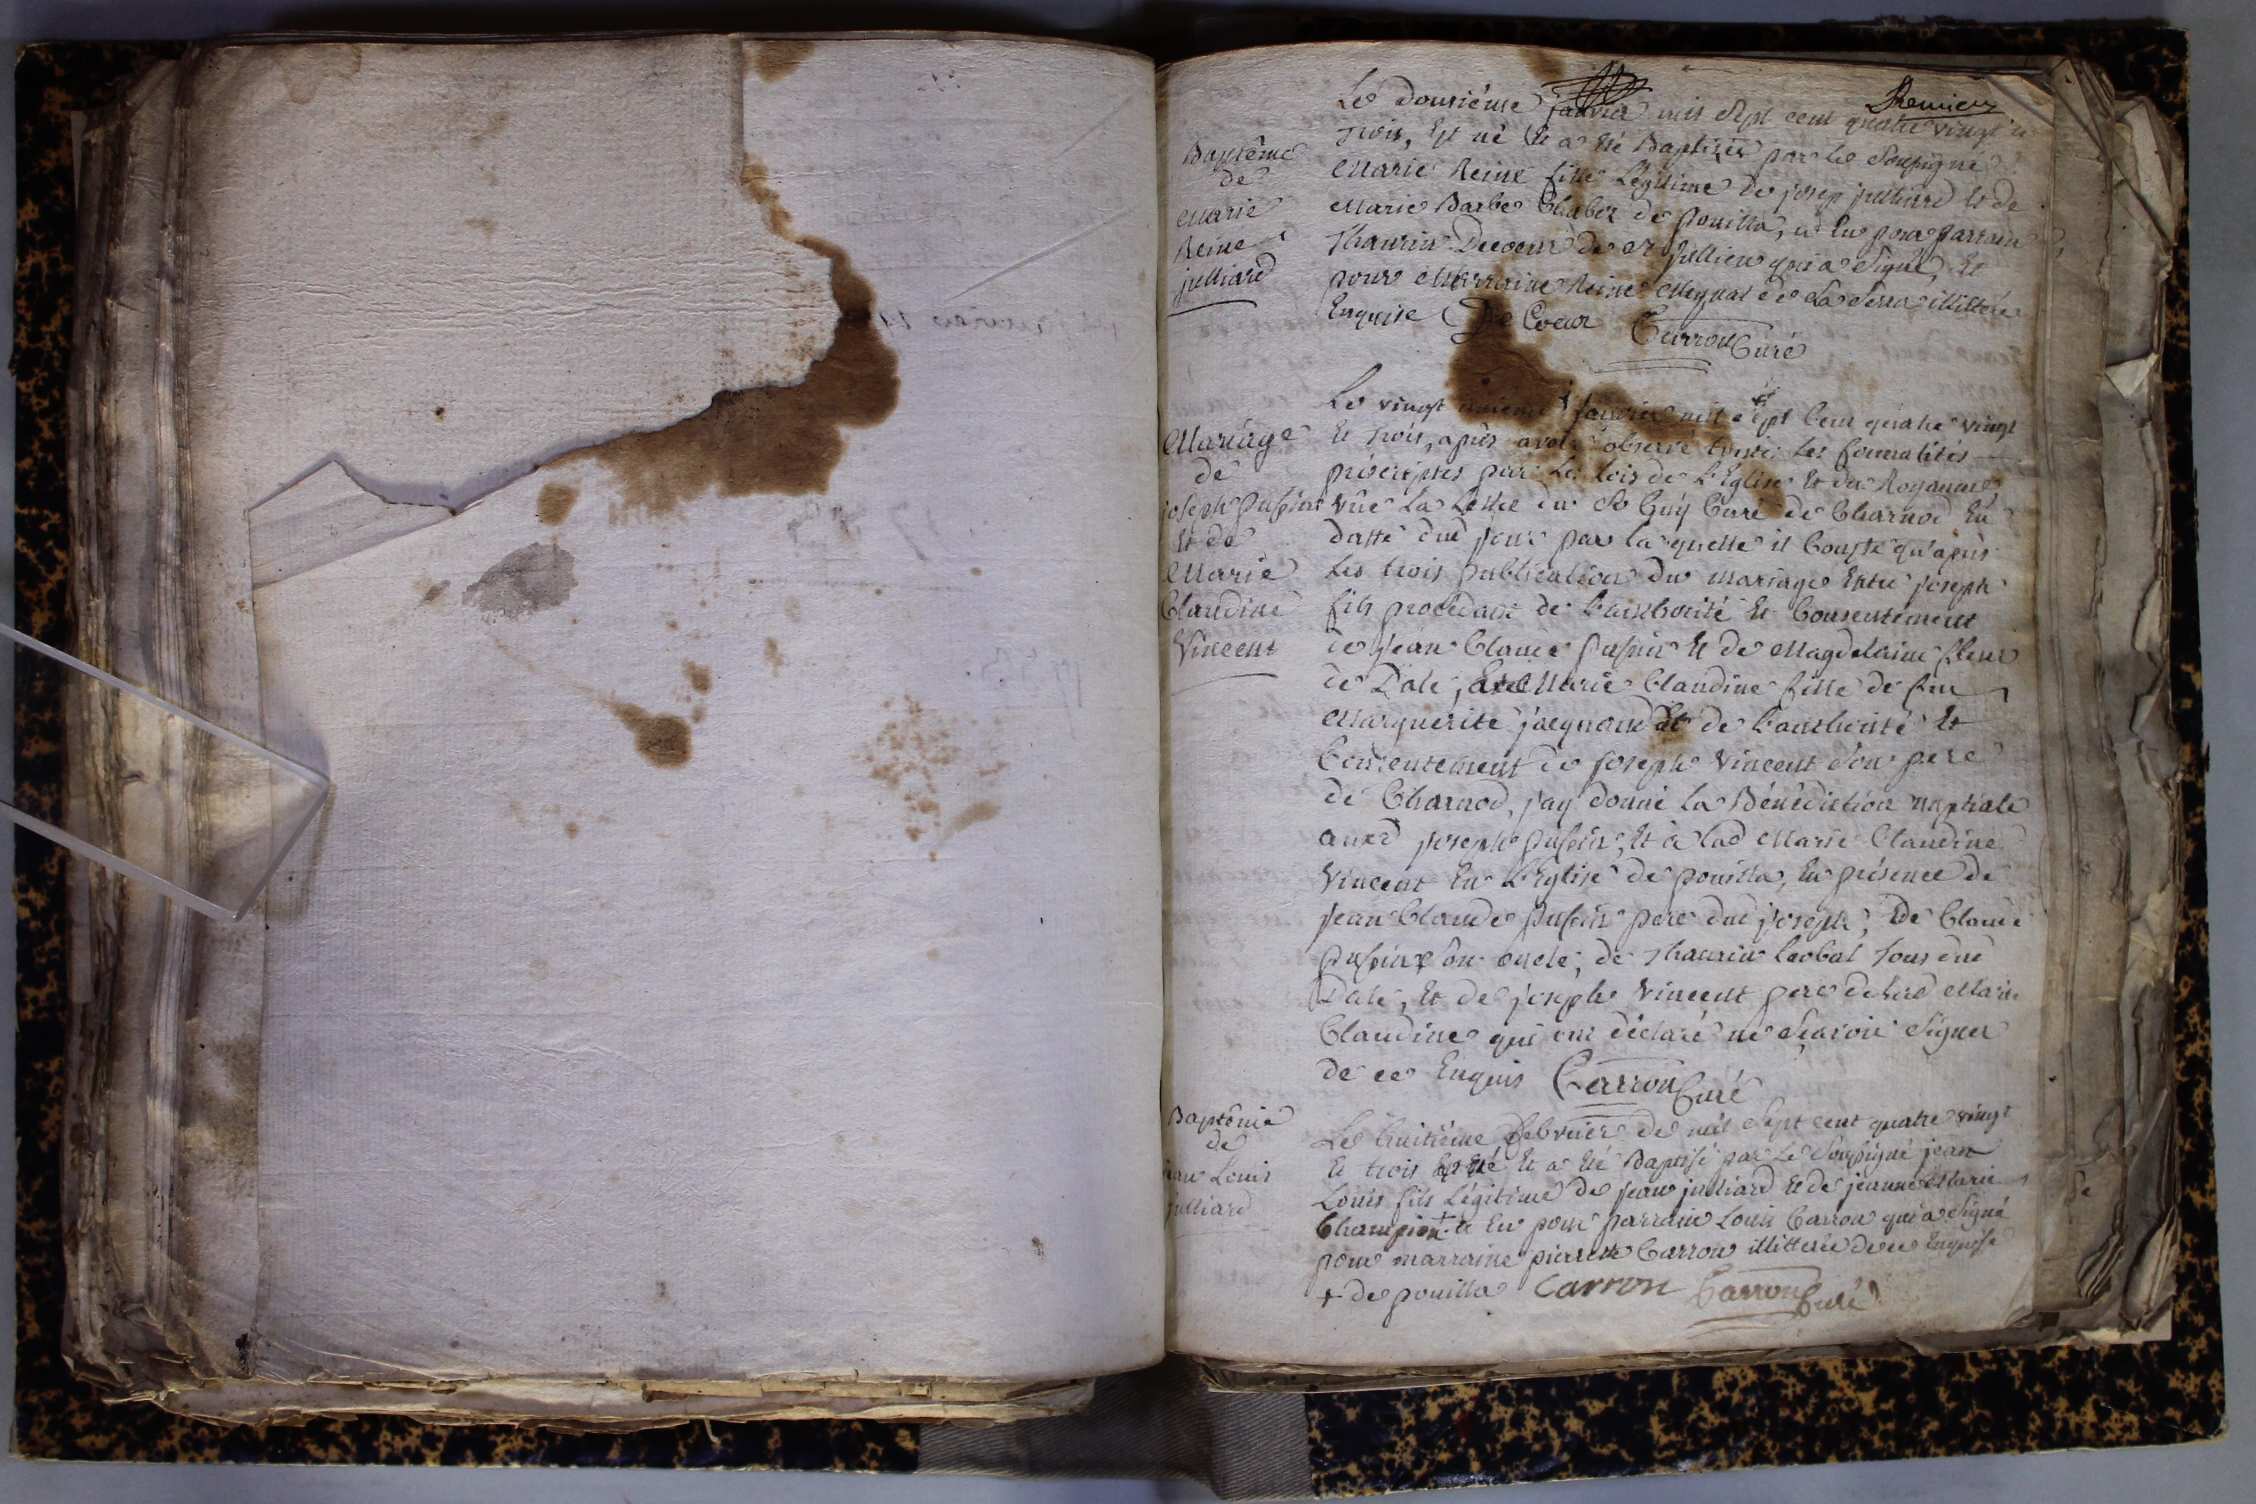 Premier
Le Douzième janvier mil Sept cent quatre vingt et
trois, Est né Et a Eté Baptisée par le Soussigné
Marie Reine fille Légitime de josep julliard Et de
Marie Barbe Chabot de pouilla, a Eu pour parrain
Thaurin Decoeur de St jullien qui a Signé, Et
pour Marraine Reine de La illitterée
Enquise De Coeur Carron Curé
Baptême
de
Marie
Reine
julliard
Le vingt janvier mil Sept Cent quatre vingt
Et trois, après avoir observé toutes Les formalités
préscriptes par Les lois de L'Eglise Et du Royaume
vüe La Lettre du Sr Guy Curé de Charnod En
datte dud jour par la quelle il Conste qu'après
Les trois publication du mariage Entre joseph
fils procédant de L'authorité Et Consentement
de jean Claude pupin Et de Magdelaine
de Dale, Et Marie Claudine fille de feu
Marguerite Et de L'authorité Et
Consentement de joseph Vincent Son pere
de Charnod, j'ay donné La Bénédiction nuptiale
aud joseph pupin, Et à lad Marie Claudine
Vincent En L'Eglise de pouilla, En présence de
jean Claude pupin pere dud joseph, De Claude
pupin Son oncle, de Thaurin tous dud
Dale, Et de joseph Vincent pere de lad Marie
Claudine qui ont déclaré ne Sçavoir Signer
de ce Enquis Carron Curé
Mariage
de
joseph pupin
Et de
Marie
Claudine
Vincent
Le huitième febvrier de mil Sept cent quatre vingt
Et trois Est né Et a Eté Baptisé par Le Soussigné jean
Louis fils Légitime de jean julliard Et de jeanne Marie
Champion + a Eu pour parrain Louis Carron qui a Signé
pour marraine pierrette Carron illitterée de ce Enquise
+ de pouilla Carron Carron Curé
Baptême
de
jean Louis
julliard